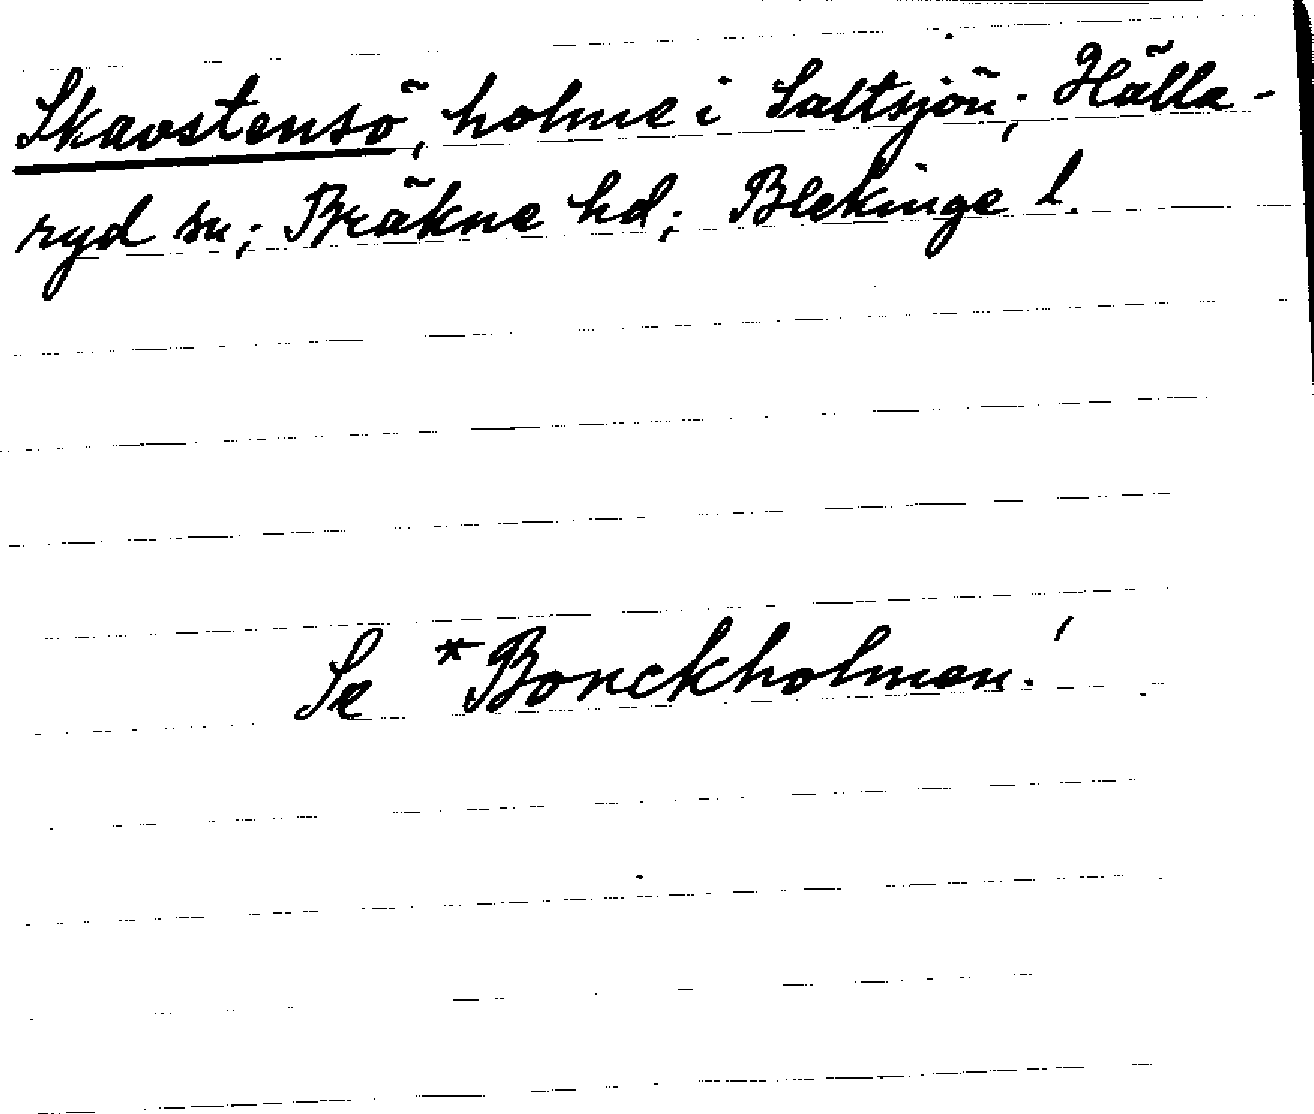 Skavstensö, holme i Saltsjön; Hälla-
ryd sn; Bräkne hd; Blekinge l.
Se *Bonckholmen!